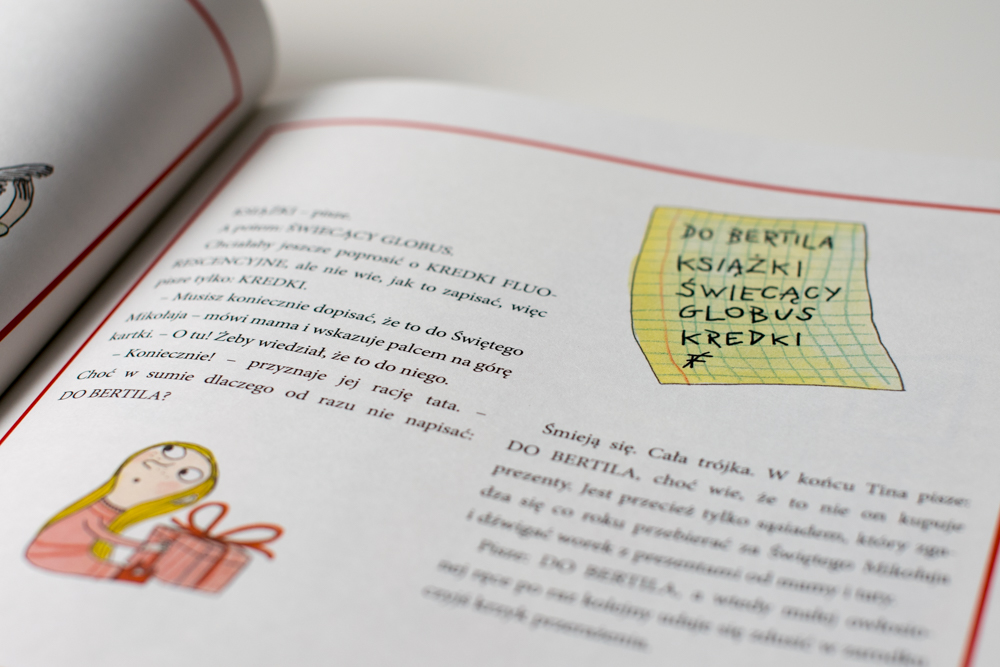 KSIĄŻKI – pisze.
A potem: ŚWIECĄCY GLOBUS.
Chciałaby jeszcze poprosić o KREDKI FLUO-
RESCENCYJNE, ale nie wie, jak to zapisać, więc
pisze tylko: KREDKI.
– Musisz koniecznie dopisać, że to do Świętego
Mikołaja – mówi mama i wskazuje palcem na górę
kartki. – O tu! Żeby wiedział, że to do niego.
– Koniecznie! – przyznaje jej rację tata. –
Choć w sumie dlaczego od razu nie napisać:
DO BERTILA?
DO BERTILA
KSIĄŻKI
ŚWIECĄCY
GLOBUS
KREDKI
Śmieją się. Cała trójka. W końcu Tina pisze:
DO BERTILA, choć wie, że to nie on kupuje
prezenty. Jest przecież tylko sąsiadem, który zga-
dza się co roku przebierać za Świętego Mikołaja
i dźwigać worek z prezentami od mamy i taty.
Pisze: DO BERTILA, a wtedy małej
jej ręce po raz kolejny udaje się zdusić w zarodku
czyjś krzyk przerażenia.